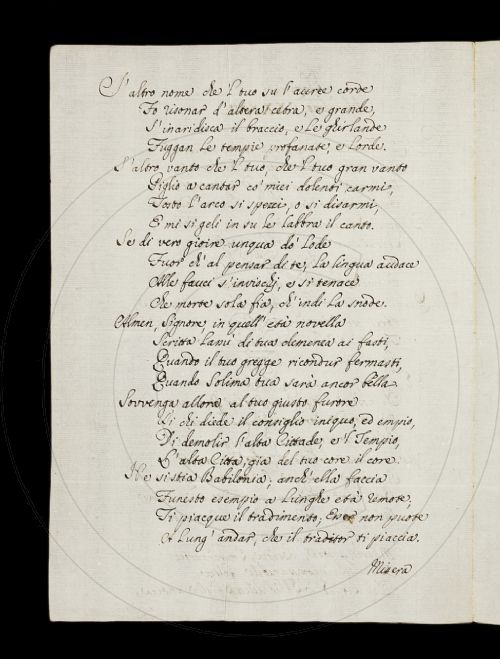 S'altro nome che 'l tuo su l'auree corde
Fo risonar d'altera cetra, e grande,
S'inaridisca il braccio, e le ghirlande
Fuggan le tempie profanate, e lorde.
S'altro vanto che 'l tuo, che 'l tuo gran vanto
Piglio a cantar co' miei dolenti carmi,
Tosto l'arco si spezzi, o si disarmi,
E mi si geli in su le labbra il canto.
Se di vero gioire unqua dò lode
Fuor ch'al pensar di te, la lingua audace
Alle fauci s'invischj, e sì tenace
Che morte sola fia, ch'indi la snode.
Almen, Signore, in quell' età novella
Scritta là di tua clemenza ai fasti,
Quando il tuo gregge ricondur fermasti,
Quando Solima tua sarà ancor bella
Sovvenga allora al tuo giusto furore
Di chi diede il consiglio iniquo, ed empio,
Di demolir l'alta Cittade, e 'l Tempio,
L'alta Città, già del tuo core il core.
Ne si stia Babilonia; anch'ella faccia
Funesto esempio a lunghe età remote,
Ti piacque il tradimento; non puote
A lung' andar, che il traditor ti piaccia.
Misera